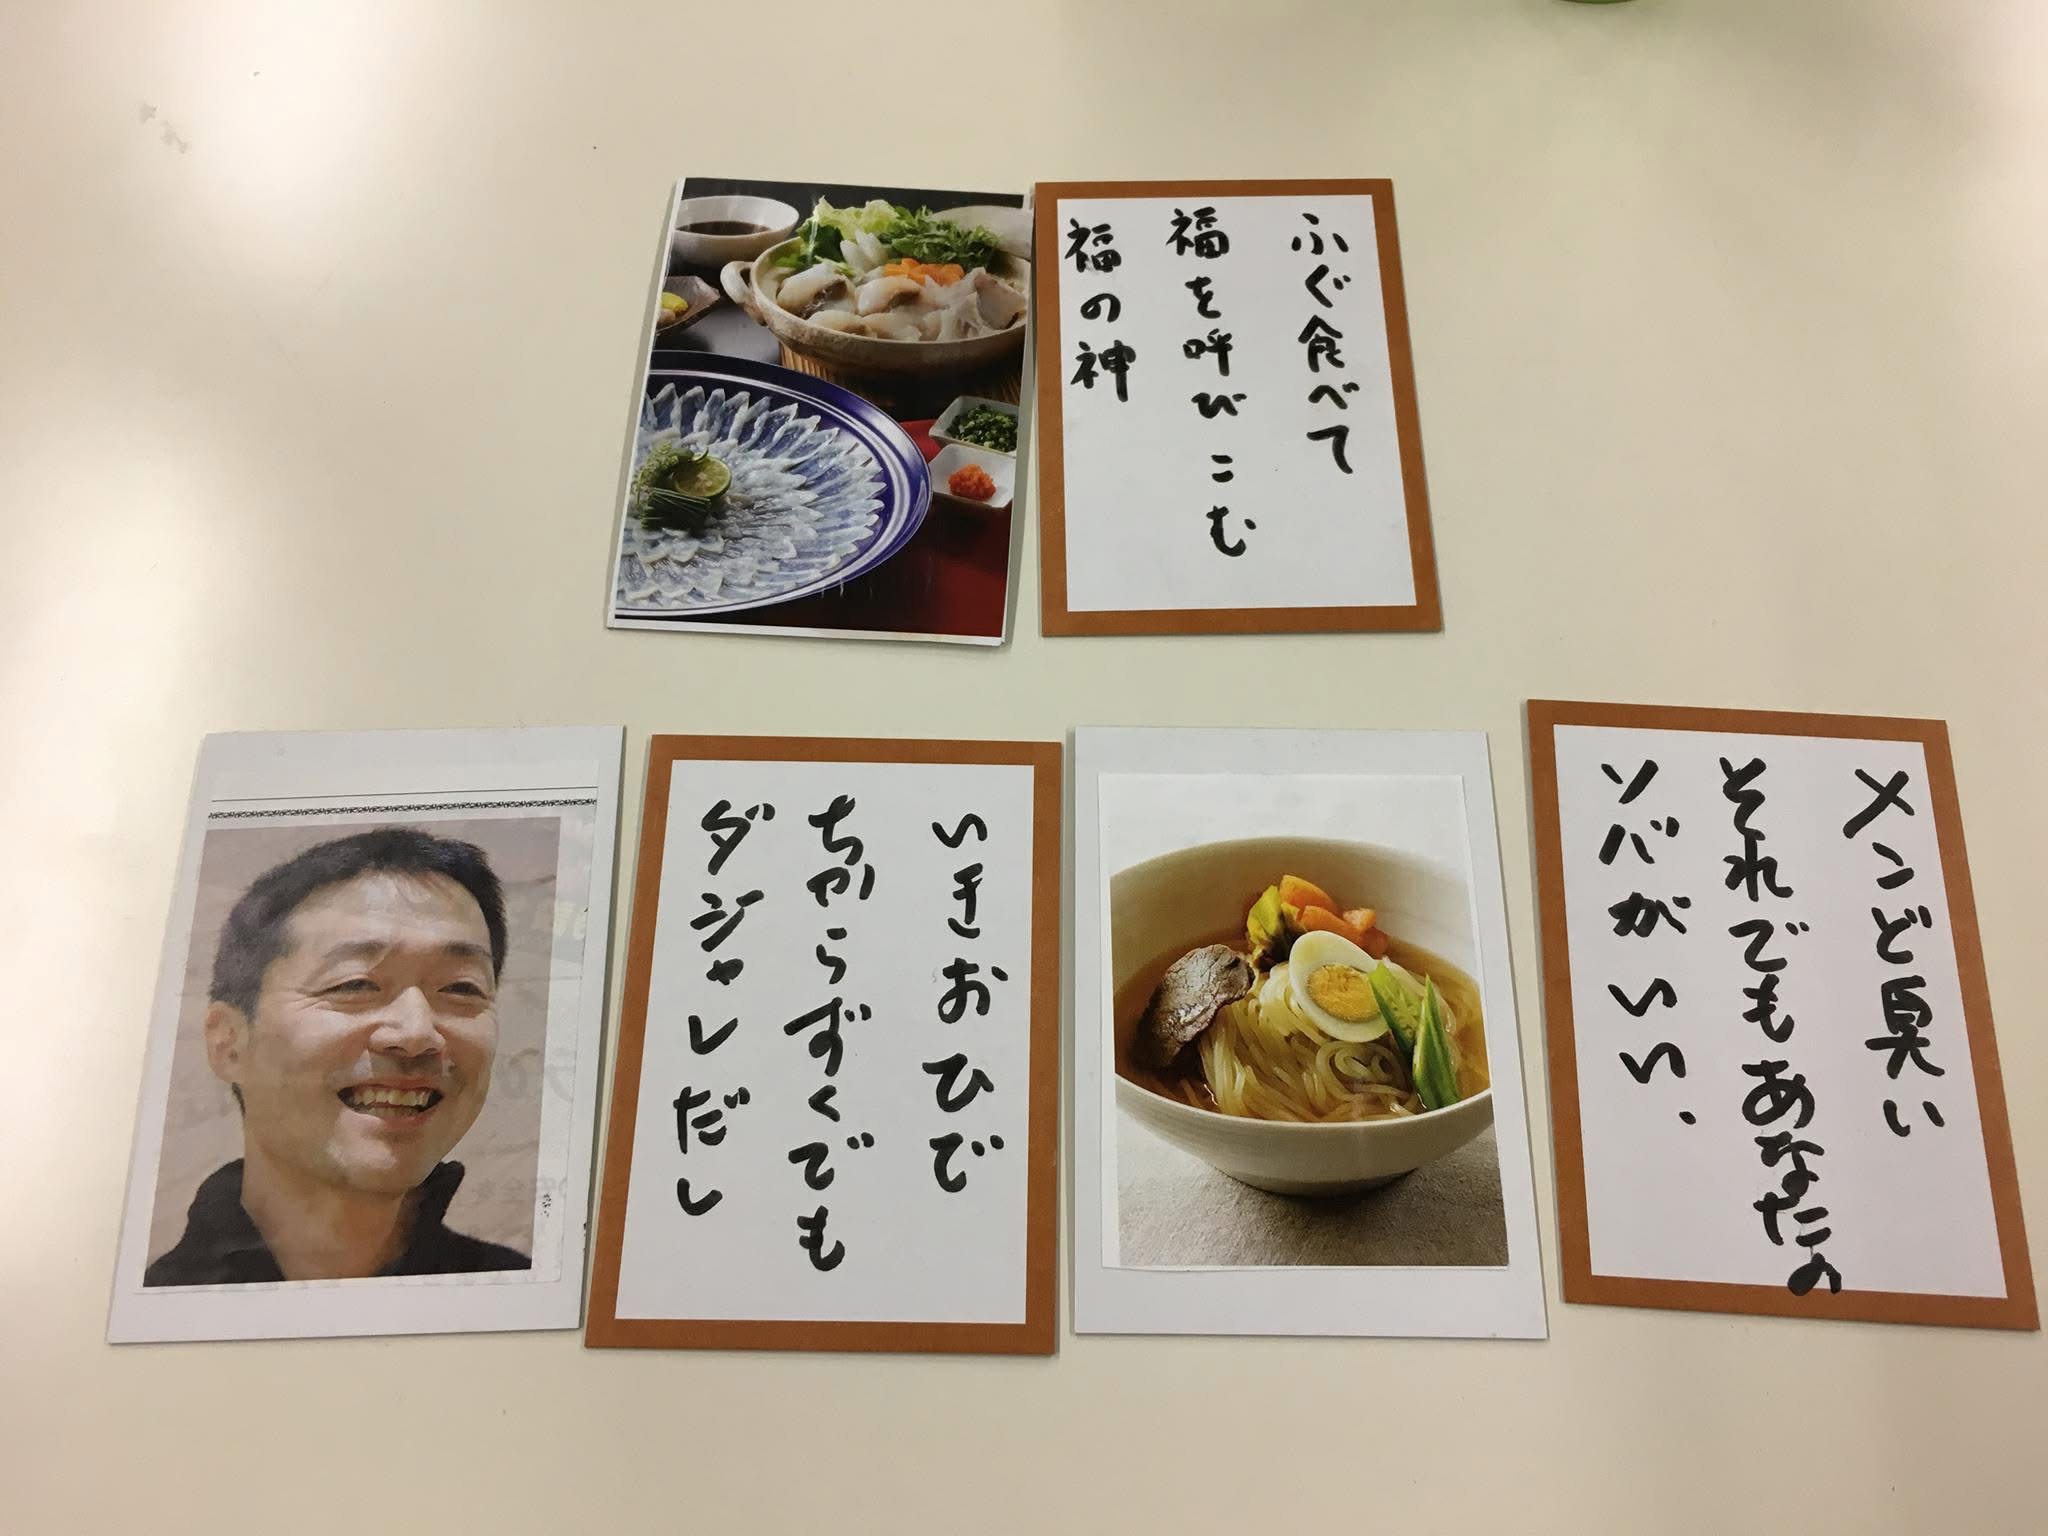 ふぐ食べて
福を呼びこむ
福の神
いきおひで
ちからずくでも
ダジャレだし
メンど臭い
それでもあなたの
ソバがいい.